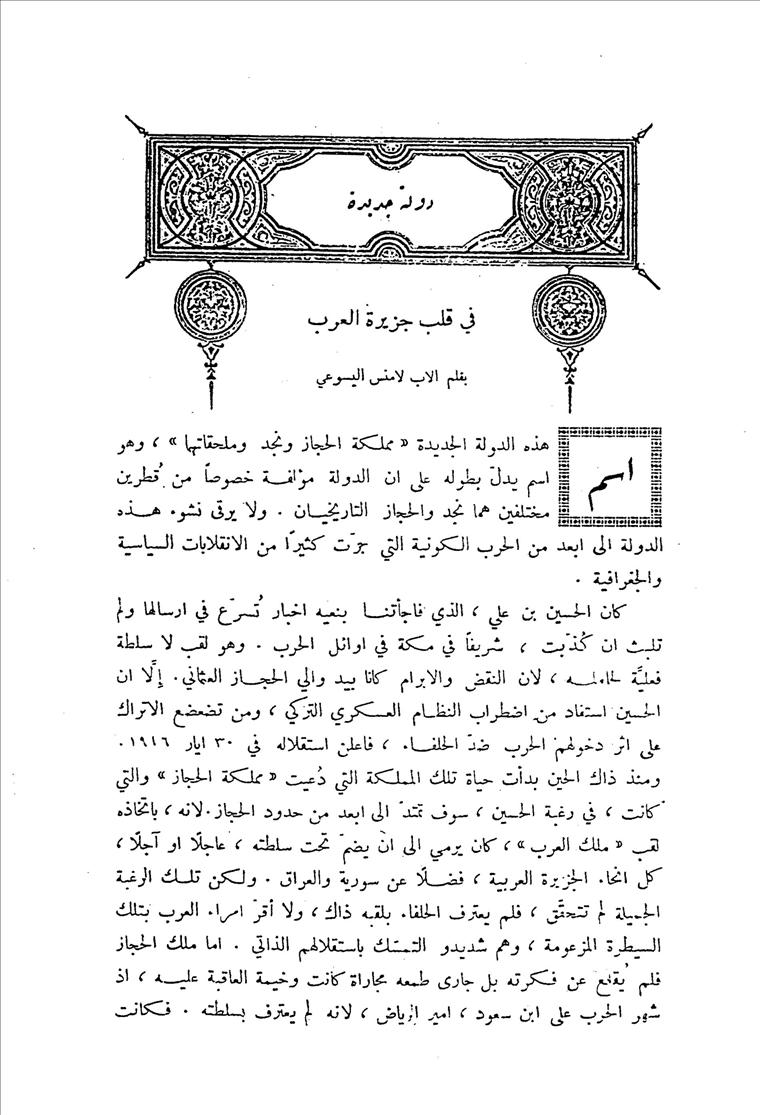 دولة جديدة
في قلب جزيرة العرب
بقلم الاب لامنس اليسوعي
اسم
هذه الدولة الجديدة « مملكة الحجاز ونجد وملحقاتها » ، وهو
اسم يدلّ بطوله على ان الدولة مؤلفة خصوصاً من قُطرين
مختلفين هما نجد والحجاز التاريخيان . ولا يرقى نشوء هذه
الدولة الى ابعد من الحرب الكونية التي جرّت كثيرًا من الانقلابات السياسية
والجغرافية .
كان الحسين بن علي ، الذي فاجأتنا بنعيه اخبار تُسرّع في ارسالها ولم
تلبث ان كُذّبت ، شريفاً في مكة في اوائل الحرب . وهو لقب لا سلطة
فعليَّة لحامله ، لان النقض والابرام كانا بيد والي الحجاز العثماني. إلَّا ان
الحسين استفاد من اضطراب النظام العسكري التركي ، ومن تضعضع الاتراك
على اثر دخولهم الحرب ضدّ الحلفاء ، فاعلن استقلاله في ٣٠ ايار ١٩١٦.
ومنذ ذاك الحين بدأت حياة تلك المملكة التي دُعيت « مملكة الحجاز » والتي
كانت ، في رغبة الحسين ، سوف تمتدّ الى ابعد من حدود الحجاز.لانه ، باتخاذه
لقب « ملك العرب» ، كان يرمي الى ان يضمّ تحت سلطته ، عاجلًا او آجلًا ،
كل انحاء الجزيرة العربية ، فضلًا عن سورية والعراق . ولكن تلك الرغبة
الجميلة لم تتحقّق ، فلم يعترف الحلفاء بلقبه ذاك ، ولا أقرّ امراء العرب بتلك
السيطرة المزعومة ، وهم شديدو التمسّك باستقلالهم الذاتي . اما ملك الحجاز
فلم يُقنع عن فكرته بل جارى طمعه مجاراة كانت وخيمة العاقبة عليه ، اذ
شهر الحرب على ابن سعود ، امير الرياض ، لانه لم يعترف بسلطته . فكانت